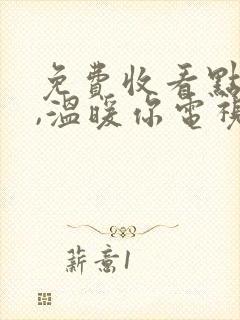 免費收看點
,溫暖你電視
薪意1